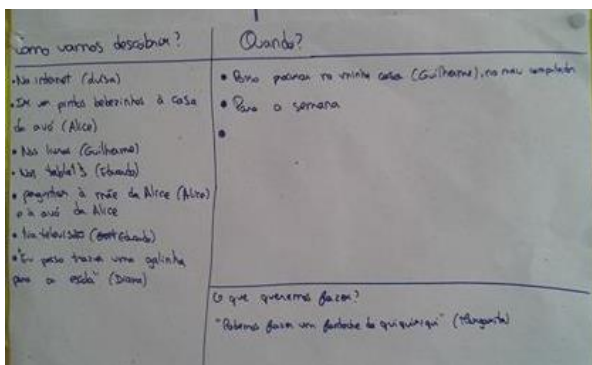 Como vamos descobrir?
• Na internet (Luísa)
• Ir ver pintos bebezinhos à casa
da avó (Alice)
• Nos livros (Guilherme)
• Nos tablets (Eduardo)
• perguntar à mãe da Alice (Alice)
e à avó da Alice
• Na televisão (Eduardo)
• "Eu posso trazer uma galinha
para a escola" (Diana)
Quando?
• Posso procurar na minha casa (Guilherme), no meu computador
• Para a semana
•
O que queremos fazer?
"Podemos fazer um fantoche do quiquiriqui" (Margarida)